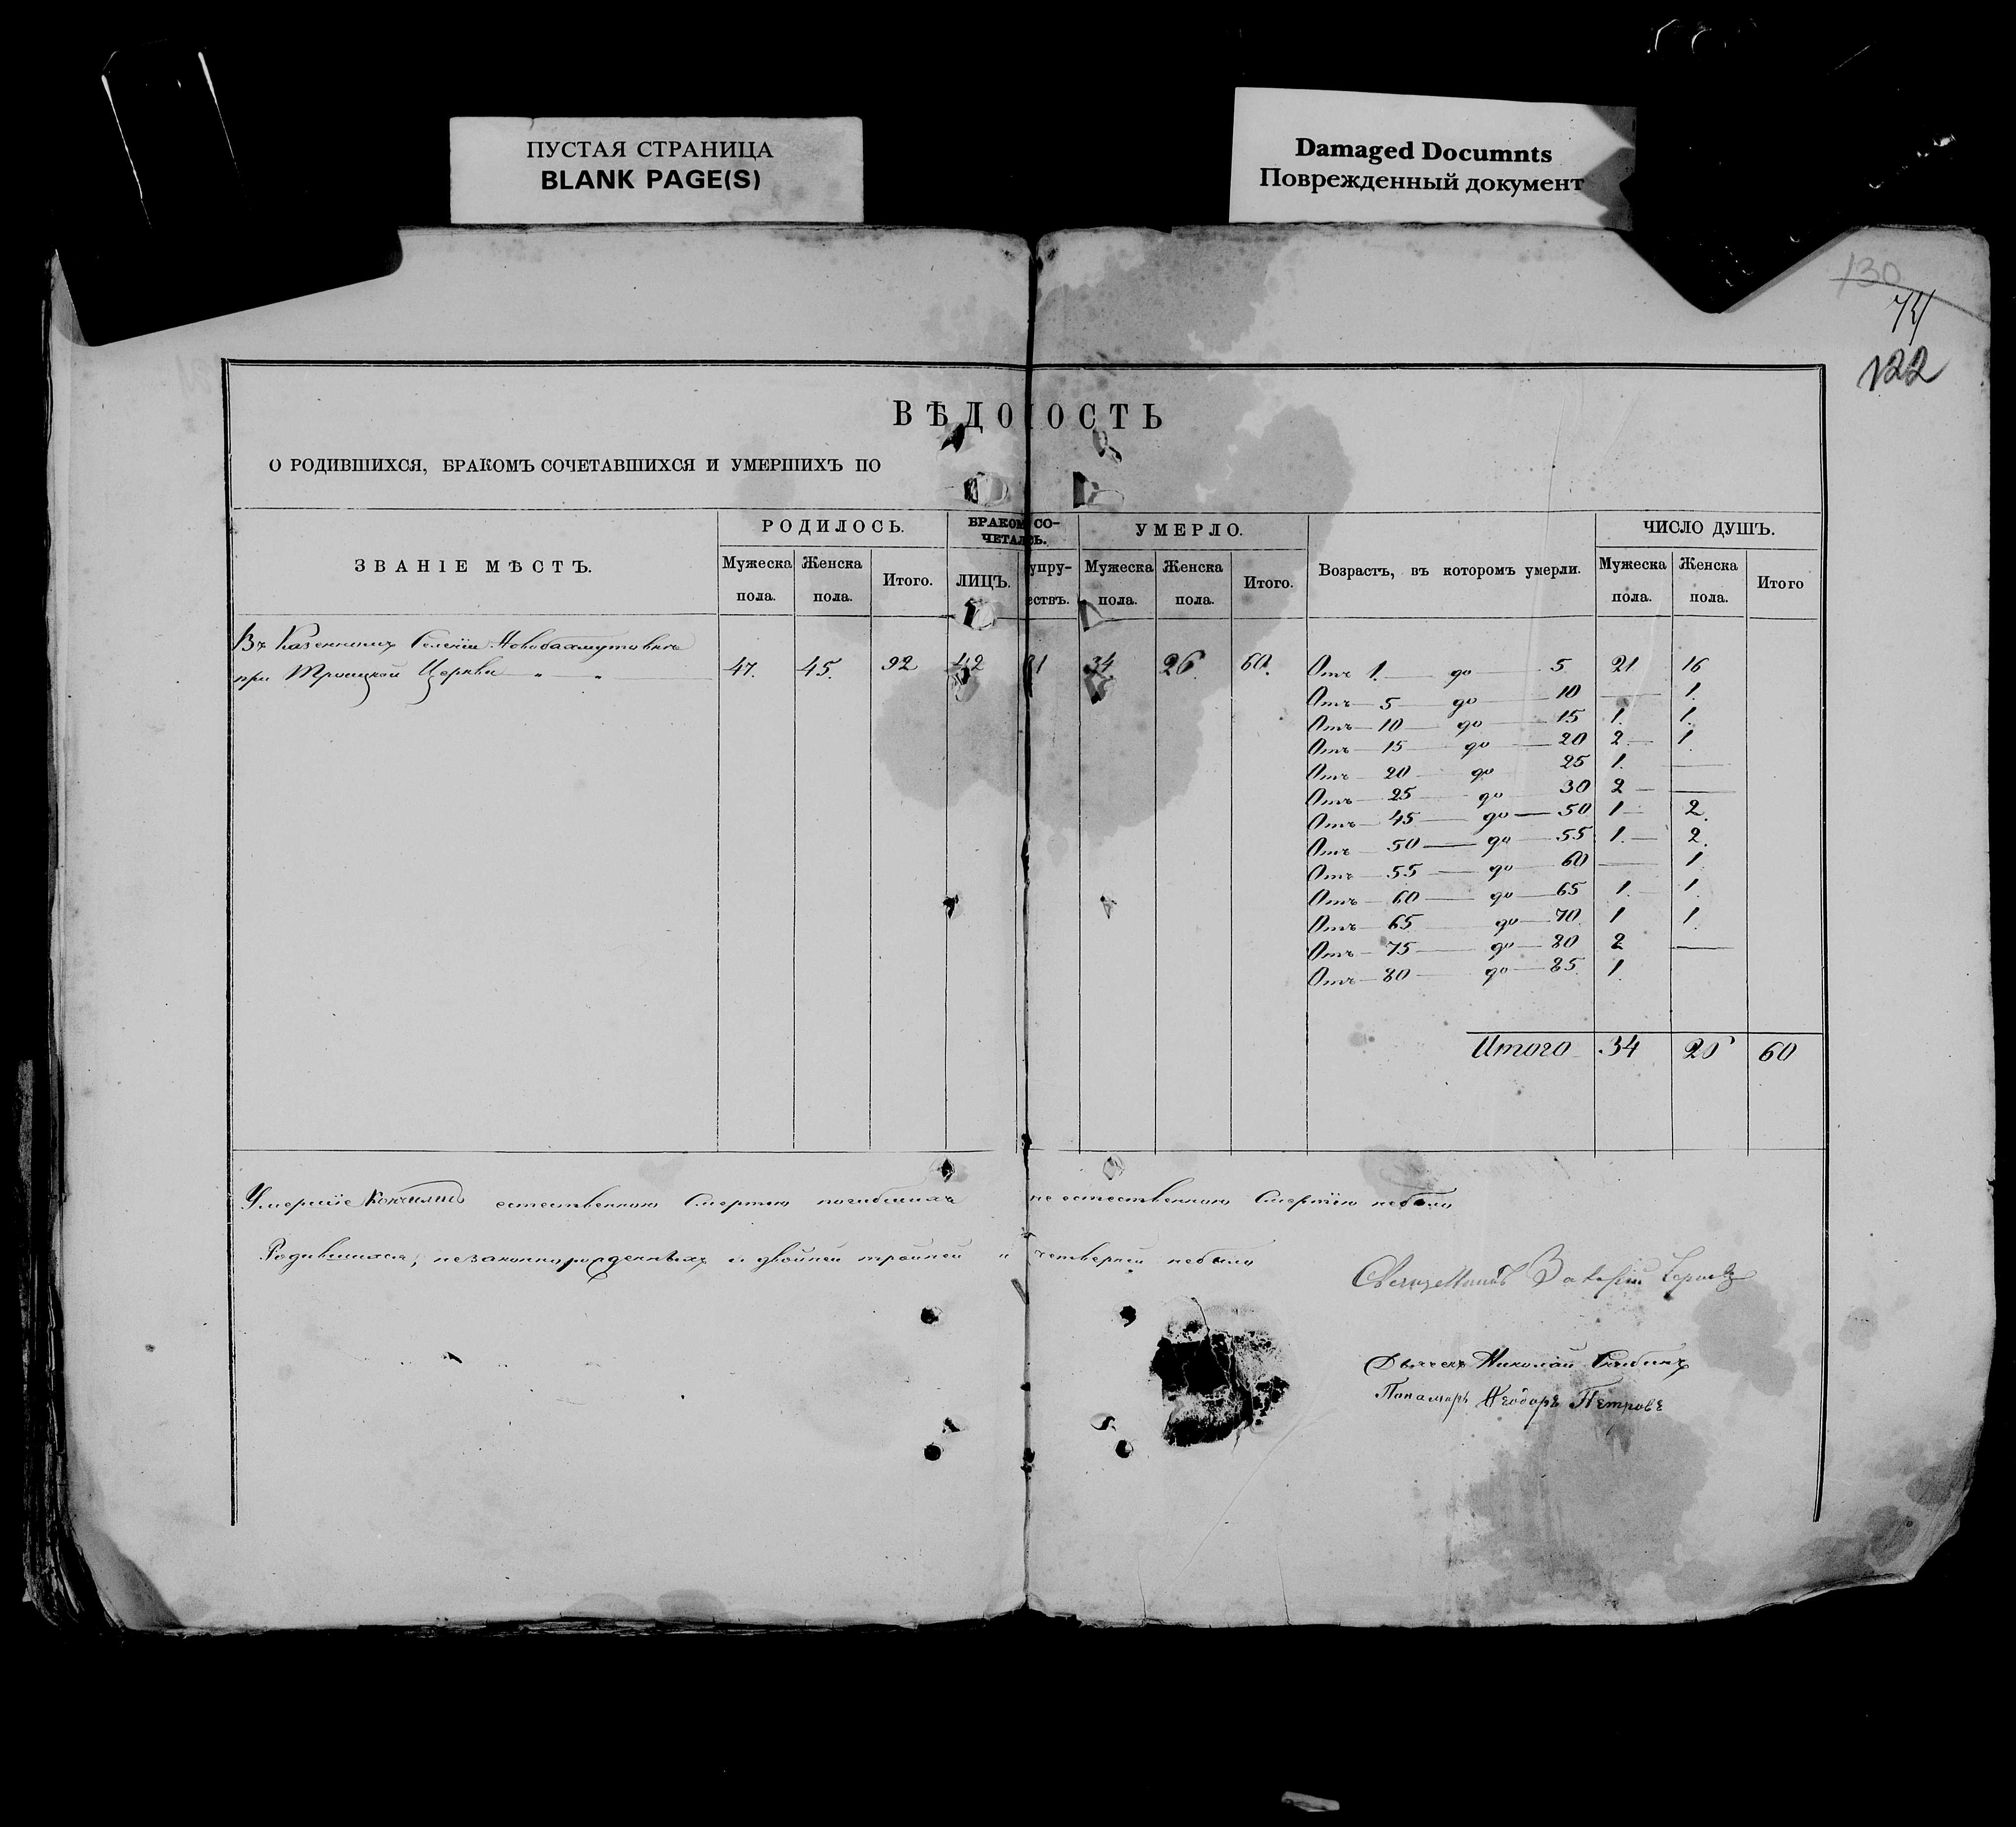 ПУСТАЯ СТРАНИЦА
BLANK PAGE(S)
Damaged Documnts
Поврежденный документ
130
74
122
ВѢДО ОСТЬ
О РОДИВШИХСЯ, БРАКОМЪ СОЧЕТАВШИХСЯ И УМЕРШИХЪ ПО
ЗВАНІЕ МѢСТЪ. РОДИЛОСЬ. БРАКОМ СО-ЧЕТАЛСЬ. УМЕРЛО. Возрастъ, въ которомъ умерли. ЧИСЛО ДУШЪ.
Мужеска пола. Женска пола. Итого. ЛИЦЪ. упру-ествъ. Мужеска пола. Женска пола. Итого. Мужеска пола. Женска пола. Итого
Въ Казенномъ Селеніи Новобахмутовкѣ
при Троицкой Церкви — " — " — 47. 45. 92 42 21 34 26. 60.
Отъ 1. — до — 5 21 16
Отъ — 5 — до — 10 — 1.
Отъ — 10 — до — 15 1. 1.
Отъ — 15 — до — 20 2. — 1.
Отъ — 20 — до 25 1. —
Отъ — 25 — до — 30 2 — —
Отъ — 45 — до — 50 1 — 2.
Отъ — 50 — до — 55 1. — 2.
Отъ — 55 — до — 60 — 1
Отъ — 60 — до — 65 1. — 1.
Отъ — 65 до — 70 1 1.
Отъ — 75 — до — 80 2 —
Отъ — 80 — до — 85. 1.
Итого 34 26 60
Умершіе кончились естественною Смертію погибшихъ не естественною Смертію небыло
Родившихся, незаконнорожденныхъ и двойней тройней и четверней небыло
Священникъ Захарій
Дьячекъ Николай
Понамарь Ѳеодоръ Петровъ